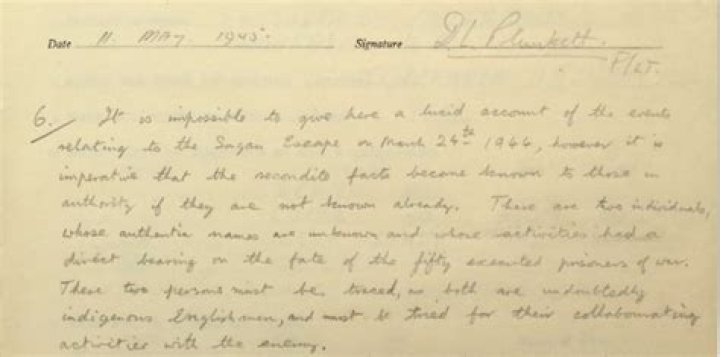 Date 11. MAY. 1945. Signature D.L. Plunkett.
F/LT.
6. It is impossible to give here a lucid account of the events
relating to the Sagan Escape on March 24th 1944, however it is
imperative that the recondite facts become known to those in
authority if they are not known already. There are two individuals,
whose authentic names are unknown and whose activities had a
direct bearing on the fate of the fifty executed prisoners of war.
These two persons must be traced, as both are undoubtedly
indigenous Englishmen, and must be tried for their collaborating
activities with the enemy.